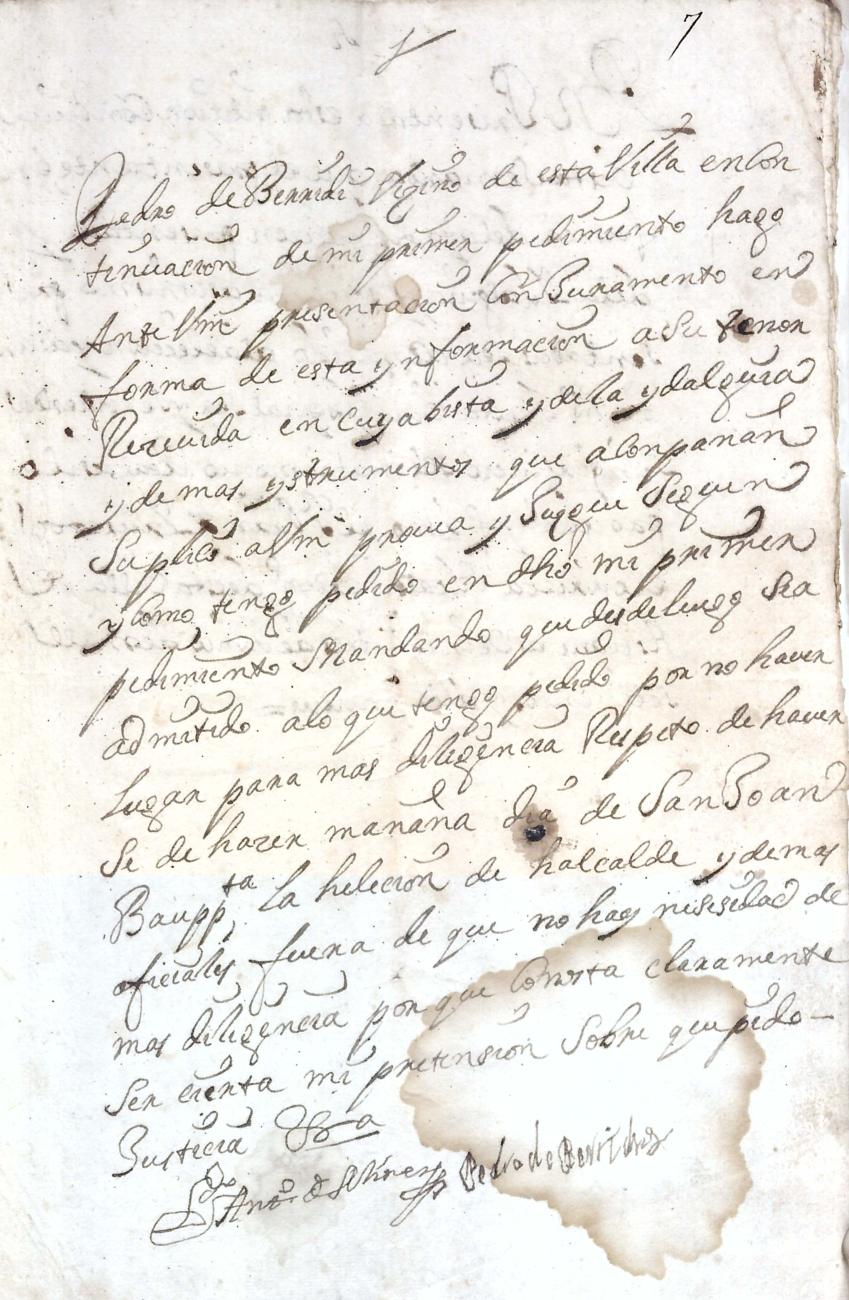 7
Pedro de Berridi Vezino de esta Villa en Con
tinuacion de mi primer pedimiento hago
Ante Vm presentacion Con Juramento en
forma de esta ynformacion a su tenor
Recivida en Cuya bista y de la ydalguia
y demas ystrumentos que aConpañan
Suplico a Vm provea y Segun
y Como tengo pedido en dho mi primer
pedimiento Mandando que desde luego sea
admitido a lo que tengo pedido por no haver
lugar para mas diligencia Respeto de haver
Se de hazer mañana dia de San Joan
Bauppta la helecion de halcalde y demas
oficiales fuera de que no hay nesesidad de
mas diligencia por que Consta claramente
Ser cierta mi pretension Sobre que pido
Justicia
Ldo Anto de Pedro de Berridi